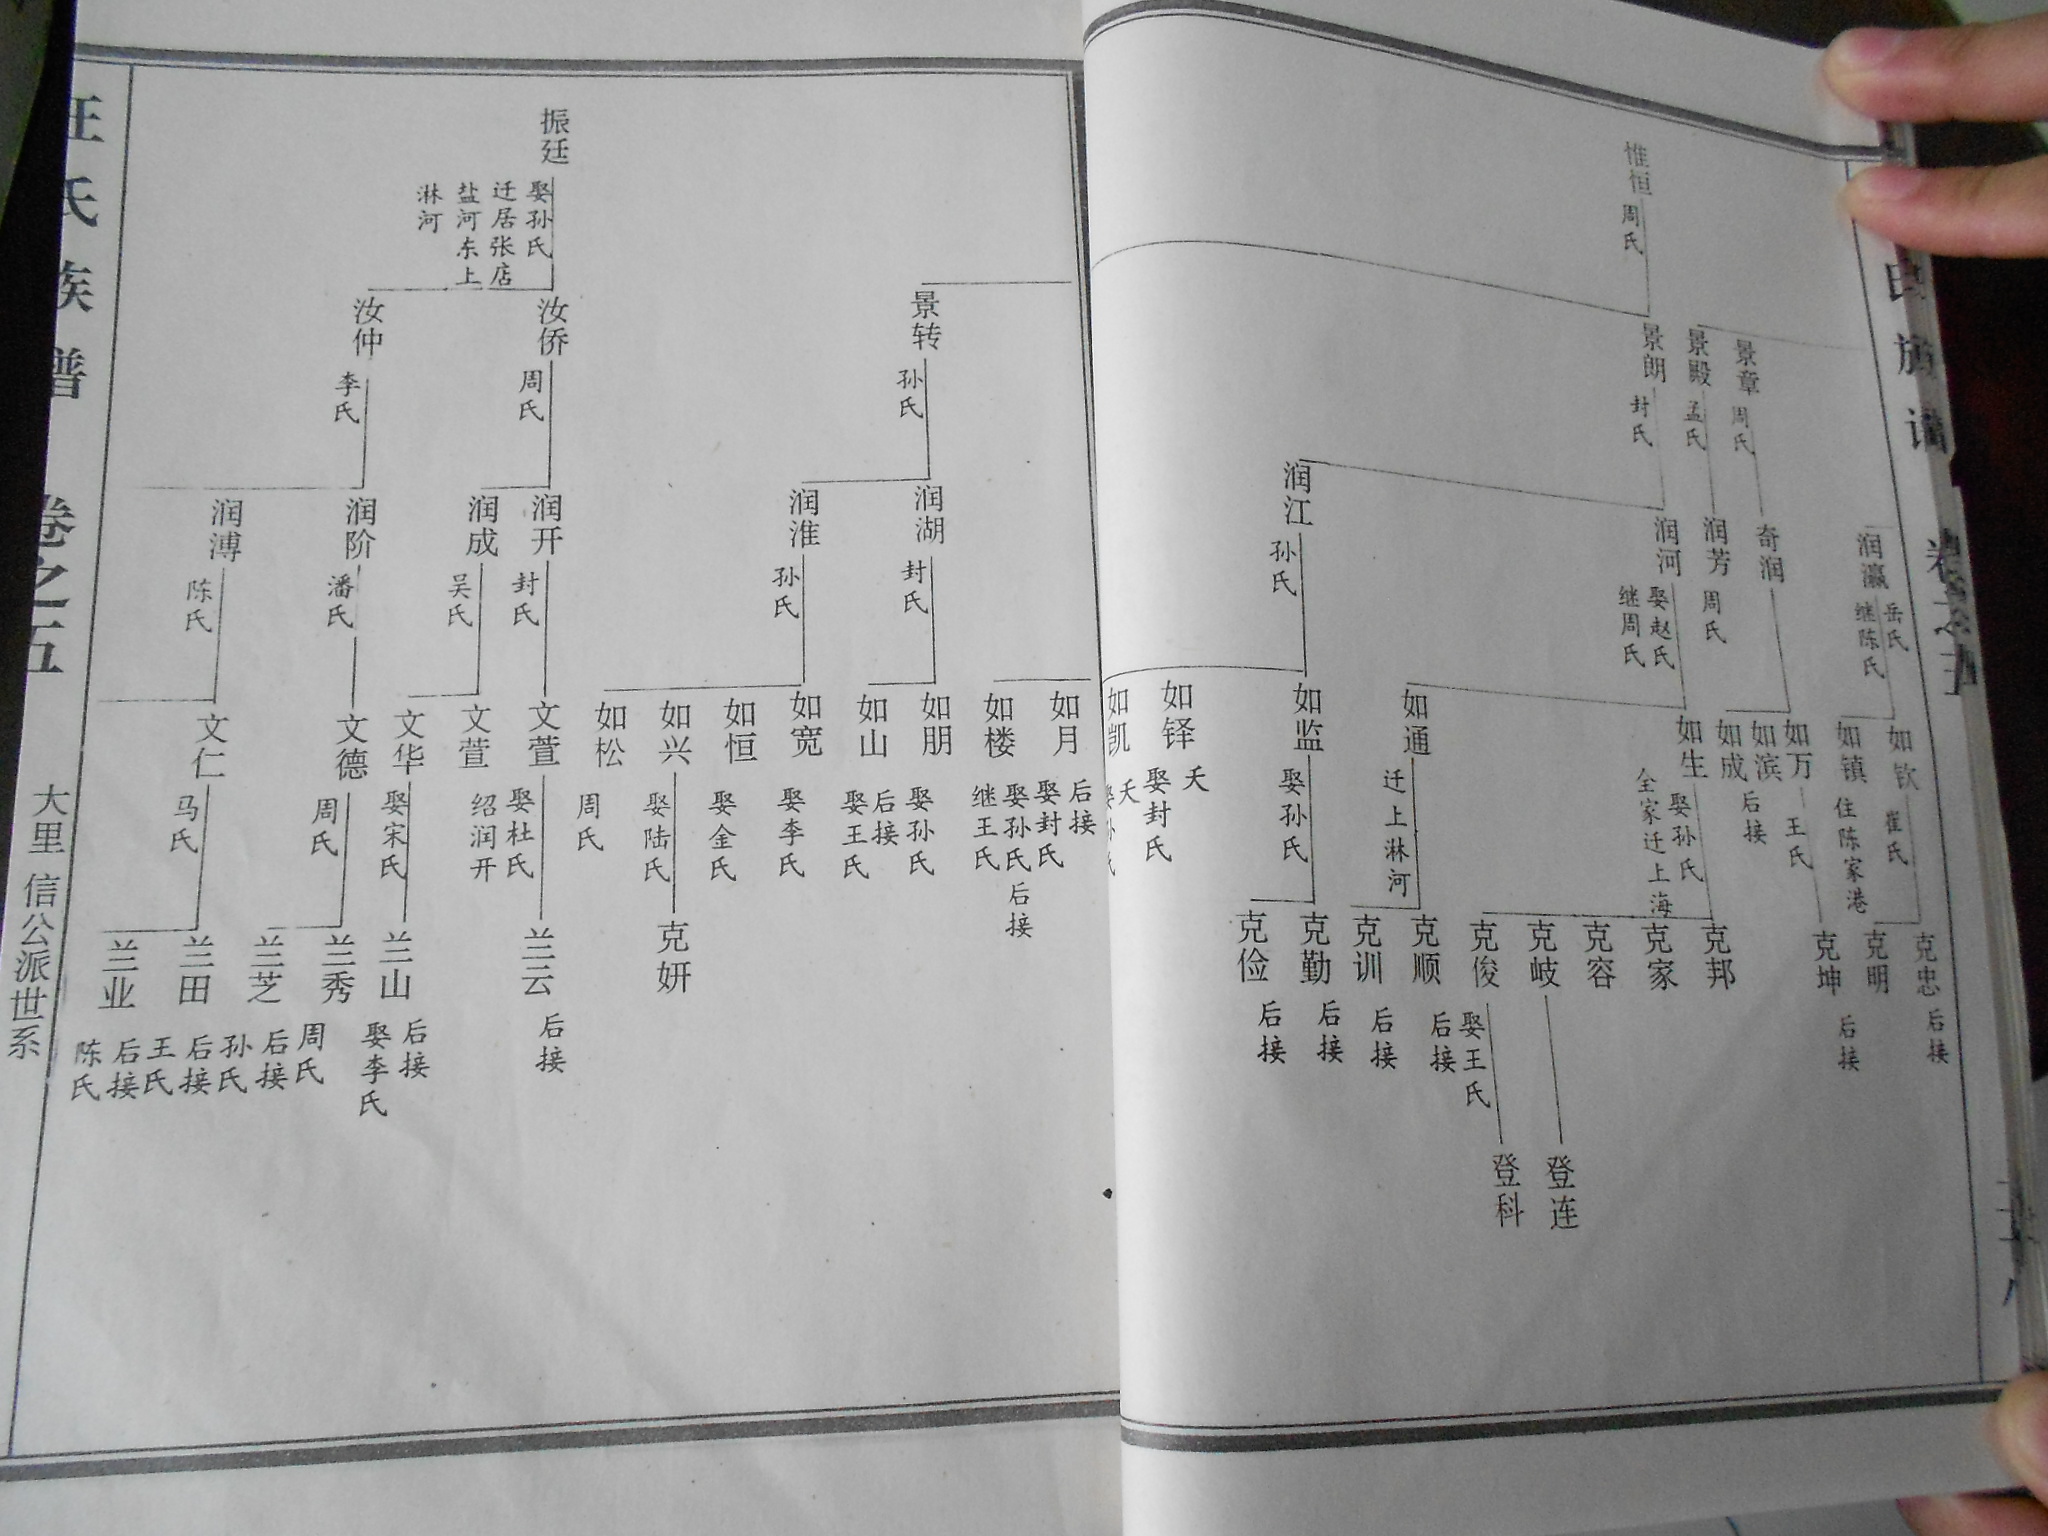 氏族谱
卷之五
惟恒
周氏
景章
周氏
景殿
孟氏
景朗
封氏
润瀛
岳氏
继陈氏
奇润
润芳
周氏
润河
娶赵氏
继周氏
润江
孙氏
如钦
崔氏
如镇
住陈家港
如万
王氏
如滨
如成
后接
如生
娶孙氏
全家迁上海
如通
迁上淋河
如监
娶孙氏
如铎
夭
娶封氏
如凯
夭
娶孙氏
克忠
后接
克明
克坤
后接
克邦
克家
克容
克岐
克俊
娶王氏
克顺
后接
克训
后接
克勤
后接
克俭
后接
登连
登科
景转
孙氏
润湖
封氏
润淮
孙氏
如月
后接
娶封氏
如楼
娶孙氏后接
继王氏
如朋
娶孙氏
如山
后接
娶王氏
如宽
娶李氏
如恒
娶金氏
如兴
娶陆氏
如松
周氏
克妍
振廷
娶孙氏
迁居张店
盐河东上
淋河
汝侨
周氏
汝仲
李氏
润开
封氏
润成
吴氏
润阶
潘氏
润溥
陈氏
文萱
娶杜氏
文萱
绍润开
文华
娶宋氏
文德
周氏
文仁
马氏
兰云
后接
兰山
后接
娶李氏
兰秀
周氏
兰芝
后接
孙氏
兰田
后接
王氏
兰业
后接
陈氏
汪氏族谱
卷之五
大里
信公派世系